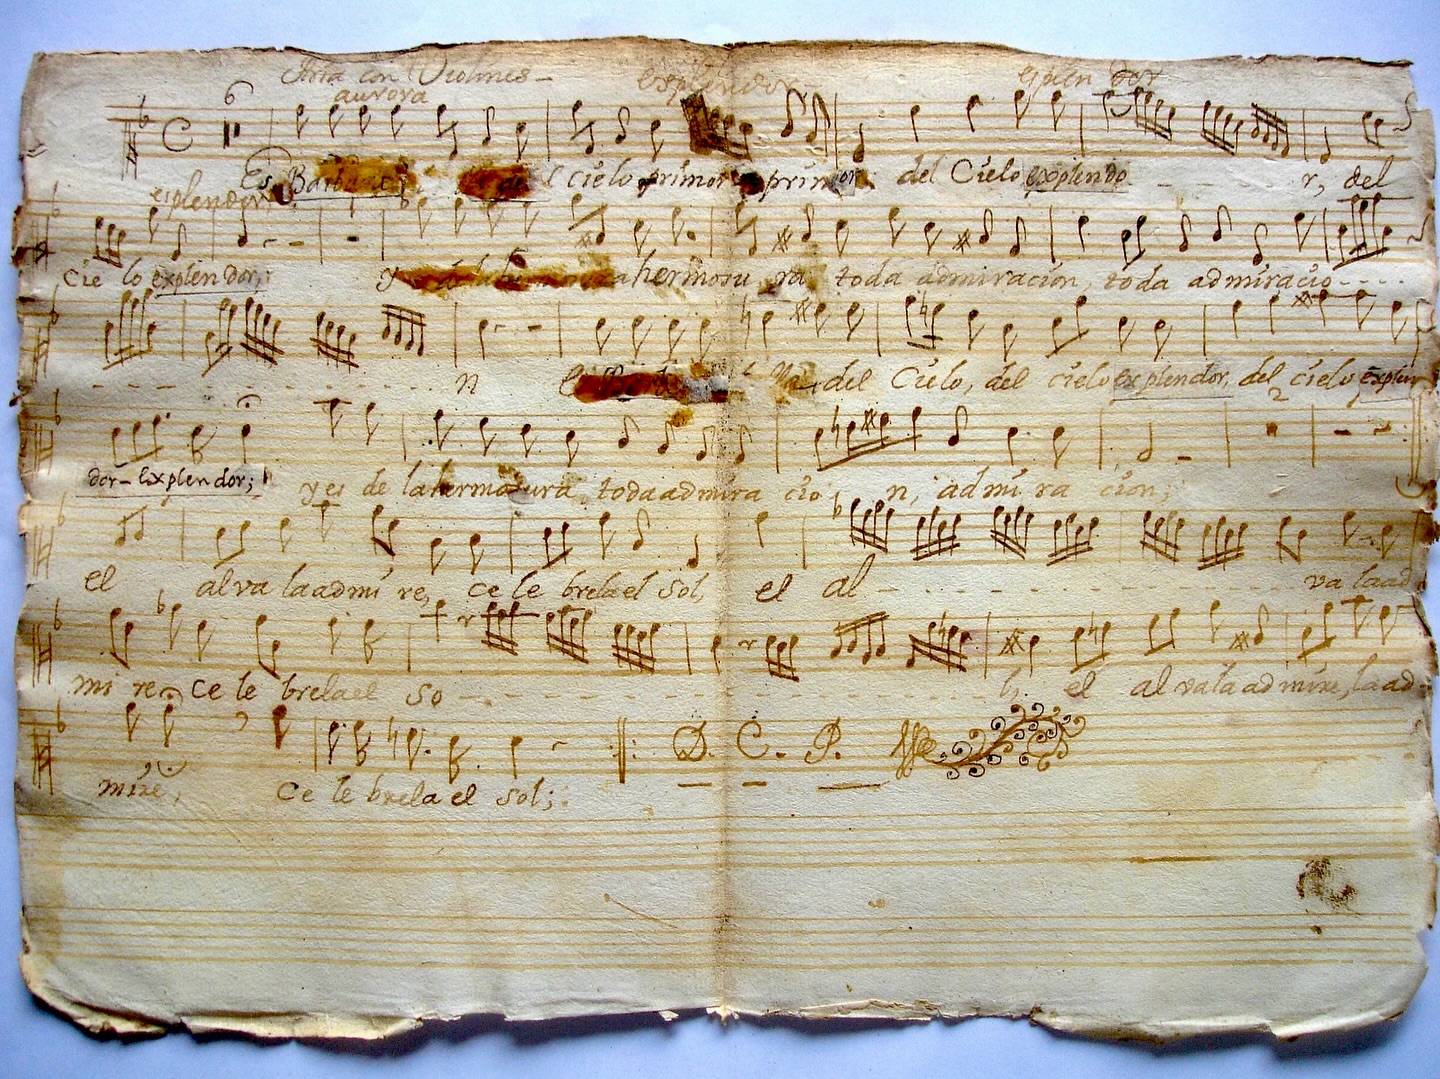 Aria con Violines
aurora esplendor esplendor
6
C
Es Barbara cielo primor primor del Cielo explendo - - - r, del
esplendor
Cie lo explendor; y hermosu ra toda admiracion, toda admiracio - - - -
- - - - n del Cielo, del cielo explendor, del cielo explen
2
dor - explendor; y es de la hermosura toda admira cio, n, admi ra cion;
el alva la admi re, ce le brela el Sol, el al - - - - va la ad
mi re, ce le brela el So - - - - l; el al va la ad mire, la ad
mire, Ce le brela el Sol;
D. C. P.